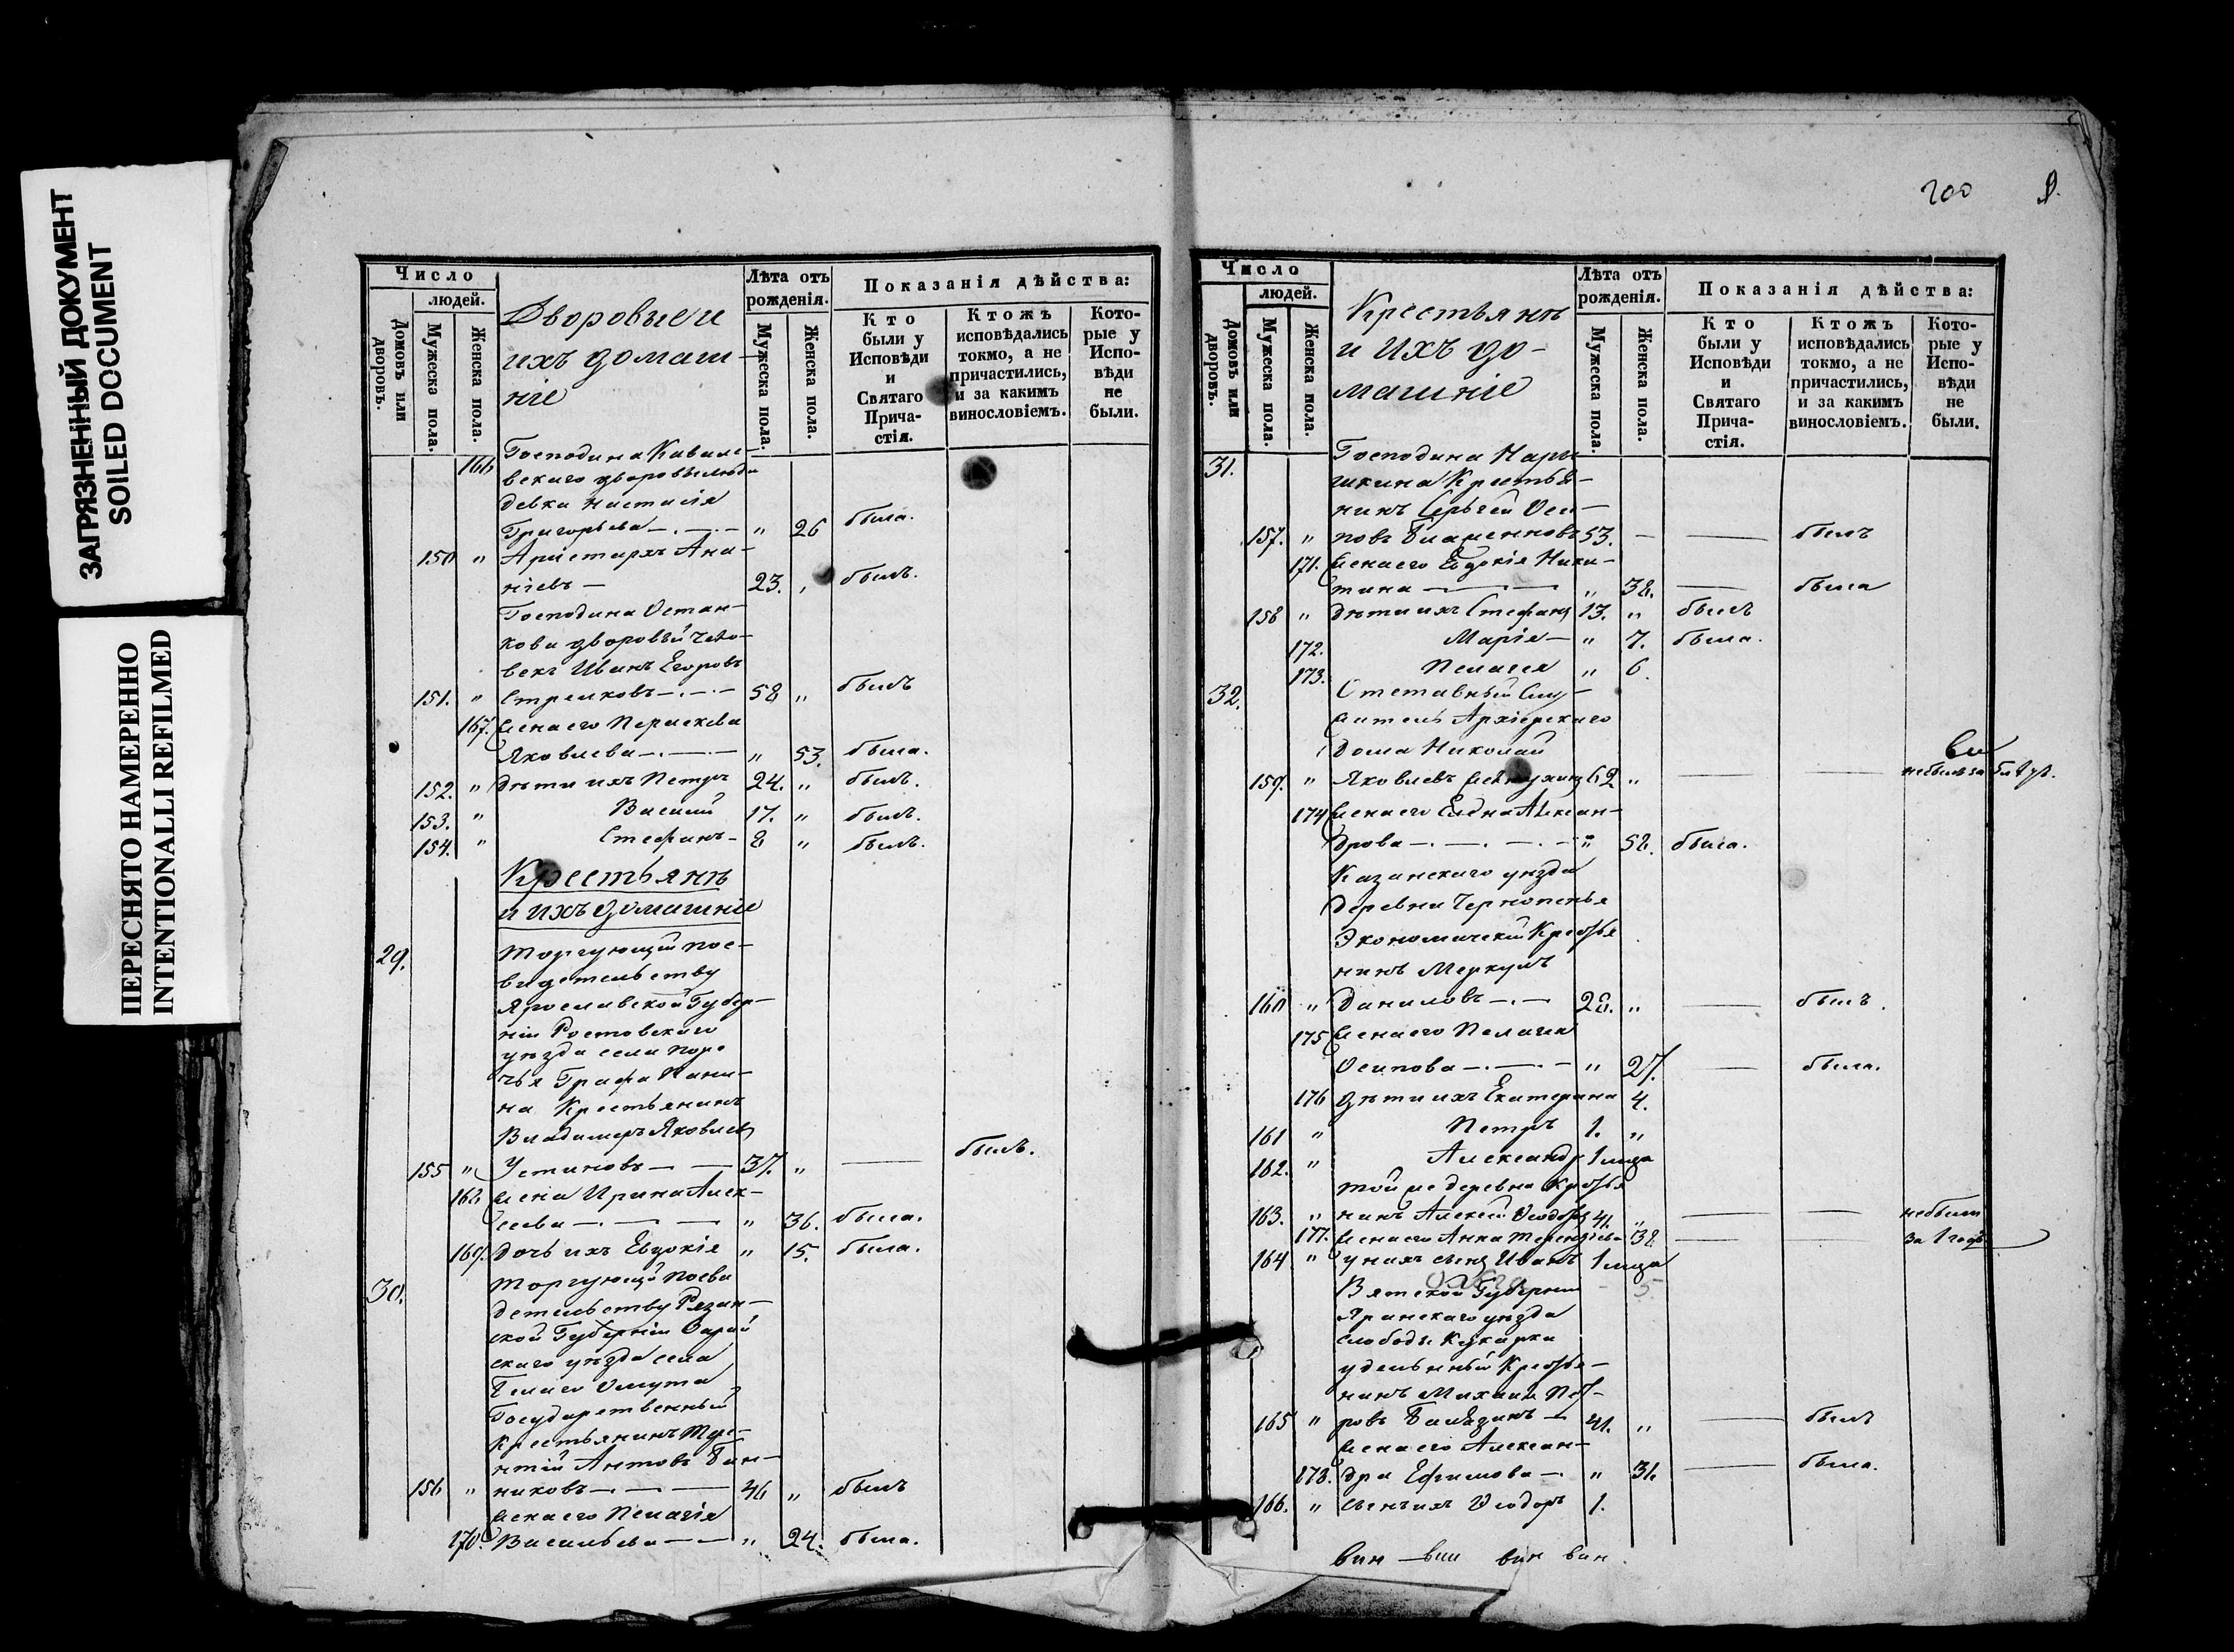 ЗАГРЯЗНЕННЫЙ ДОКУМЕНТ
SOILED DOCUMENT
ПЕРЕСНЯТО НАМЕРЕННО
INTENTIONALLI REFILMED
Число
людей.
Домовъ или дворовъ.
Мужеска пола.
Женска пола.
Дворовые и
ихъ домаш-
ніе
Лѣта отъ рожденія.
Мужеска пола.
Женска пола.
Показанія дѣйства:
Кто были у Исповѣди и Святаго Прича-стія.
Ктожъ исповѣдались токмо, а не причастились, и за какимъ винословіемъ.
Кото-рые у Испо-вѣди не были.
166 Господина
вскаго дворовые люди
девка Настасія
Григорьева — " 26 была.
150 " Аристархъ Ана-
ніевъ — 23. " былъ.
Господина Остан-
кова дворовый чело-
векъ Иванъ Егоровъ
151. " Стрелковъ — 58 " былъ
167. жена его
Яковлева — " 53. была.
152. " дѣти ихъ Петръ 24. " былъ.
153. " Василій 17. " былъ.
154. " Стефанъ — 8 " былъ.
Крестьянѣ
и ихъ домашніе
29. Торгующій по с-
видетельству
Ярославской Губер-
ніи Ростовскаго
уѣзда села Поре
чья Графа Пани-
на Крестьянинъ
Владимеръ Яковлев
155 " Устиновъ — 37. " — былъ.
168 жена Ирина Алек-
сеева — " 36. была.
169. дочь ихъ Евдокія " 15. была.
30. Торгующій по сви
детельству Рязан-
ской Губерніи Зарай
скаго уѣзда села
Белаго Омута
Государственный
Крестьянинъ
Антовъ
156 " никовъ — 46 " былъ
жена его Пелагія
170. Васильева — " 24. была.
200 9.
Число
людей.
Домовъ или дворовъ.
Мужеска пола.
Женска пола.
Крестьянѣ
и ихъ до-
машніе
Лѣта отъ рожденія.
Мужеска пола.
Женска пола.
Показанія дѣйства:
Кто были у Исповѣди и Святаго Прича-стія.
Ктожъ исповѣдались токмо, а не причастились, и за какимъ винословіемъ.
Кото-рые у Испо-вѣди не были.
31. Господина Нары
шкина Крестья-
нинъ Сергѣй Оси-
157. " повъ 53. — — былъ
171. жена его Евдокія Ники-
тина — " 38. — была
158 " дѣти ихъ Стефанъ 13. " былъ
172. Марія — " 7. была.
173. Пелагея " 6.
32. Отставный Слу-
житель Архіерскаго
дома Николай
159. " Яковлевъ 62 " — —
174 жена его Елена Алексан-
дрова — " 58. была.
Казанскаго уѣзда
деревни Чернопенья
Экономическій Крестья
нинъ Меркулъ
160 " Даниловъ — 28. " — былъ.
175 жена его Пелагея
Осипова — " 27. — была.
176 дѣти ихъ Екатерина 4.
161 " Петръ 1. "
162. " Александръ 1 мца
той же деревни Крестья
163. " нинъ Алексей Ѳеодоровъ 41. " — — не были
177. жена его Анна Терентьева 38 — — за 1 годъ
164 " у нихъ сынъ Иванъ 1 мца
Вятской Губерніи 5
Яранскаго уѣзда
слободы Кукарки
удельнный Крестья-
нинъ Михаилъ Пет-
165 " ровъ — 41. " — былъ
жена его Алексан-
178. дра Ефимова — " 31. — была.
166. " сынъ их Ѳеодоръ 1.